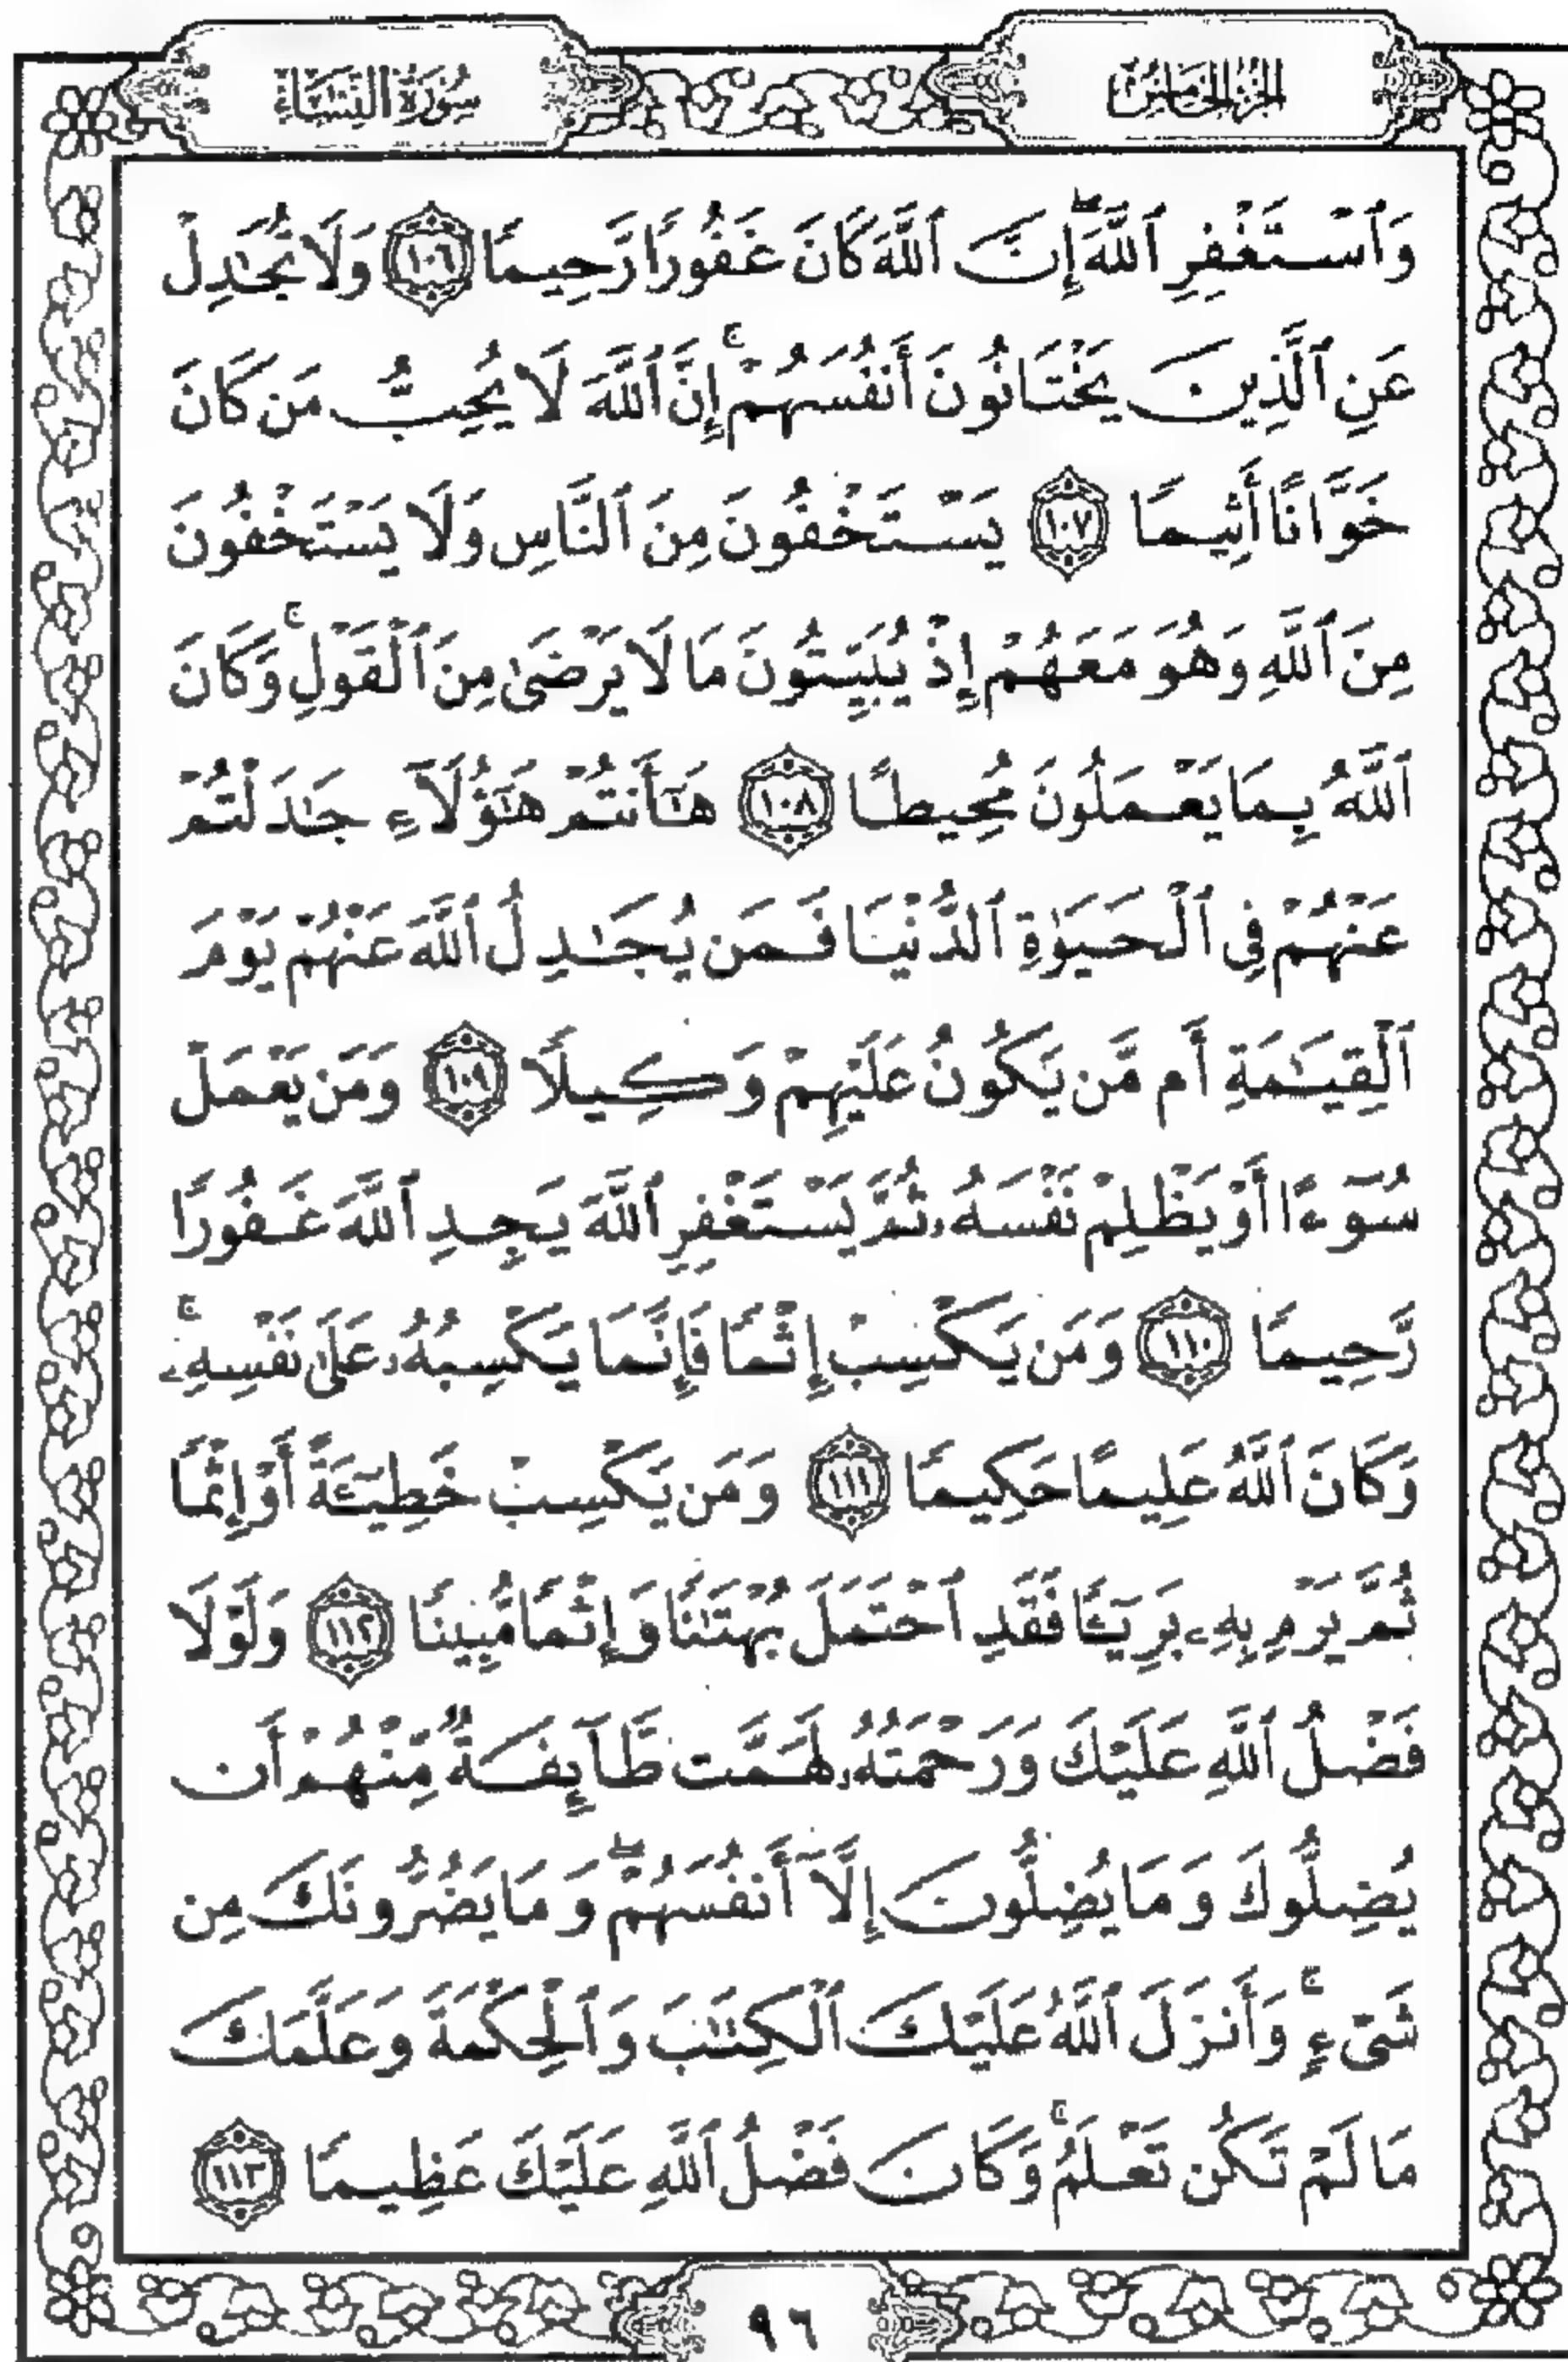 الجزء الخامس
سورة النساء
وَٱسۡتَغۡفِرِ ٱللَّهَۖ إِنَّ ٱللَّهَ كَانَ غَفُورٗا رَّحِيمٗا ١٠٦ وَلَا تُجَٰدِلۡ
عَنِ ٱلَّذِينَ يَخۡتَانُونَ أَنفُسَهُمۡۚ إِنَّ ٱللَّهَ لَا يُحِبُّ مَن كَانَ
خَوَّانًا أَثِيمٗا ١٠٧ يَسۡتَخۡفُونَ مِنَ ٱلنَّاسِ وَلَا يَسۡتَخۡفُونَ
مِنَ ٱللَّهِ وَهُوَ مَعَهُمۡ إِذۡ يُبَيِّتُونَ مَا لَا يَرۡضَىٰ مِنَ ٱلۡقَوۡلِۚ وَكَانَ
ٱللَّهُ بِمَا يَعۡمَلُونَ مُحِيطًا ١٠٨ هَٰٓأَنتُمۡ هَٰٓؤُلَآءِ جَٰدَلۡتُمۡ
عَنۡهُمۡ فِي ٱلۡحَيَوٰةِ ٱلدُّنۡيَا فَمَن يُجَٰدِلُ ٱللَّهَ عَنۡهُمۡ يَوۡمَ
ٱلۡقِيَٰمَةِ أَم مَّن يَكُونُ عَلَيۡهِمۡ وَكِيلٗا ١٠٩ وَمَن يَعۡمَلۡ
سُوٓءًا أَوۡ يَظۡلِمۡ نَفۡسَهُۥ ثُمَّ يَسۡتَغۡفِرِ ٱللَّهَ يَجِدِ ٱللَّهَ غَفُورٗا
رَّحِيمٗا ١١٠ وَمَن يَكۡسِبۡ إِثۡمٗا فَإِنَّمَا يَكۡسِبُهُۥ عَلَىٰ نَفۡسِهِۦۚ
وَكَانَ ٱللَّهُ عَلِيمًا حَكِيمٗا ١١١ وَمَن يَكۡسِبۡ خَطِيٓـَٔةً أَوۡ إِثۡمٗا
ثُمَّ يَرۡمِ بِهِۦ بَرِيٓـٔٗا فَقَدِ ٱحۡتَمَلَ بُهۡتَٰنٗا وَإِثۡمٗا مُّبِينٗا ١١٢ وَلَوۡلَا
فَضۡلُ ٱللَّهِ عَلَيۡكَ وَرَحۡمَتُهُۥ لَهَمَّت طَّآئِفَةٞ مِّنۡهُمۡ أَن
يُضِلُّوكَ وَمَا يُضِلُّونَ إِلَّآ أَنفُسَهُمۡۖ وَمَا يَضُرُّونَكَ مِن
شَيۡءٖۚ وَأَنزَلَ ٱللَّهُ عَلَيۡكَ ٱلۡكِتَٰبَ وَٱلۡحِكۡمَةَ وَعَلَّمَكَ
مَا لَمۡ تَكُن تَعۡلَمُۚ وَكَانَ فَضۡلُ ٱللَّهِ عَلَيۡكَ عَظِيمٗا ١١٣
٩٦